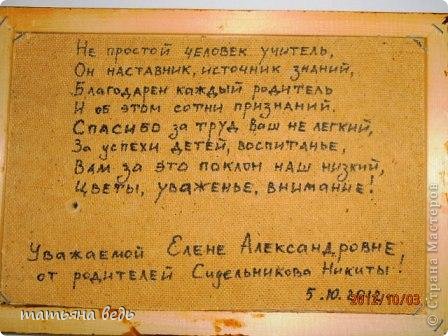 Не простой человек учитель,
Он наставник, источник знаний,
Благодарен каждый родитель
И об этом сотни признаний.
Спасибо за труд Ваш не легкий,
За успехи детей, воспитанье,
Вам за это поклон наш низкий,
Цветы, уваженье, внимание!
Уважаемой Елене Александровне
от родителей Сидельникова Никиты!
5.10.2012
2012/10/03
татьяна ведь
© Страна Мастеров